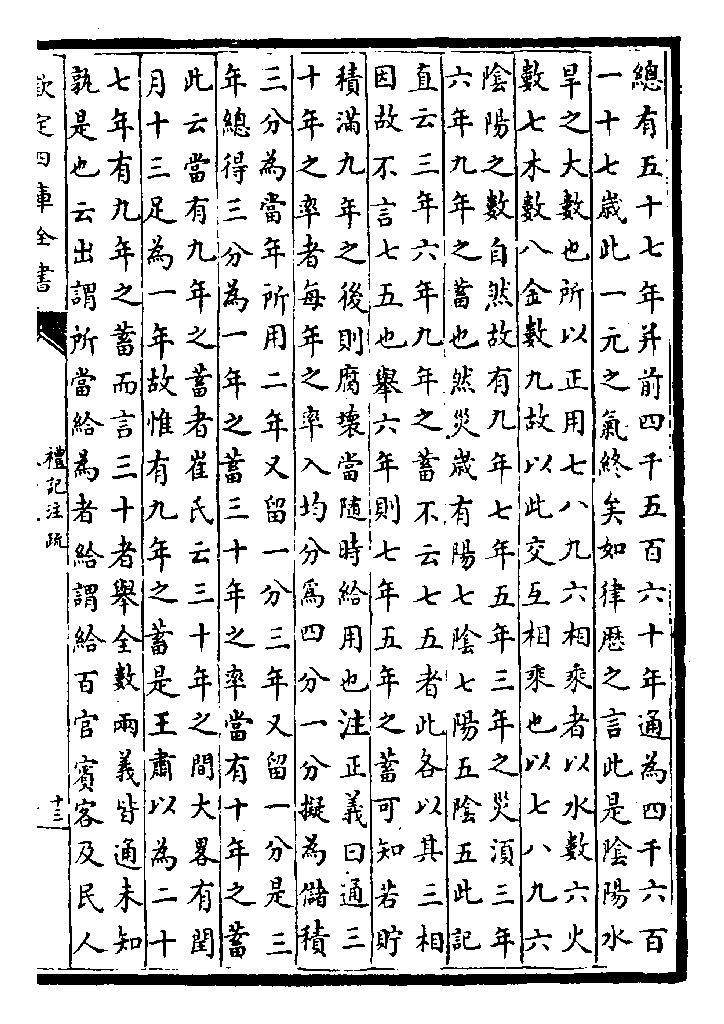 總有五十七年并前四千五百六十年通為四千六百
一十七歲此一元之氣終矣如律歷之言此是陰陽水
旱之大數也所以正用七八九六相乘者以水數六火
數七木數八金數九故以此交互相乘也以七八九六
陰陽之數自然故有九年七年五年三年之災須三年
六年九年之蓄也然災歲有陽七陰七陽五陰五此記
直云三年六年九年之蓄不云七五者此各以其三相
因故不言七五也舉六年則七年五年之蓄可知若貯
積滿九年之後則腐壞當隨時給用也注正義曰通三
十年之率者每年之率入均分為四分一分擬為儲積
三分為當年所用二年又留一分三年又留一分是三
年總得三分為一年之蓄三十年之率當有十年之蓄
此云當有九年之蓄者崔氏云三十年之間大畧有閏
月十三足為一年故惟有九年之蓄是王肅以為二十
七年有九年之蓄而言三十者舉全數兩義皆通未知
孰是也云出謂所當給為者給謂給百官賓客及民人
欽定四庫全書
禮記注疏
十三